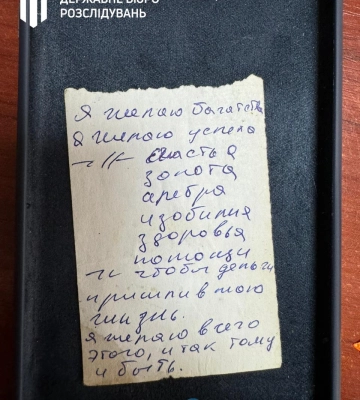 ДЕРЖАВНЕ БЮРО
РОЗСЛІДУВАНЬ
Я желаю богатства
Я желаю успеха
-//- счастья
золота
серебра
изобилия
здоровья
помощи
-//- чтобы деньги
пришли в мою
жизнь.
Я желаю всего
этого, и так тому
и быть.